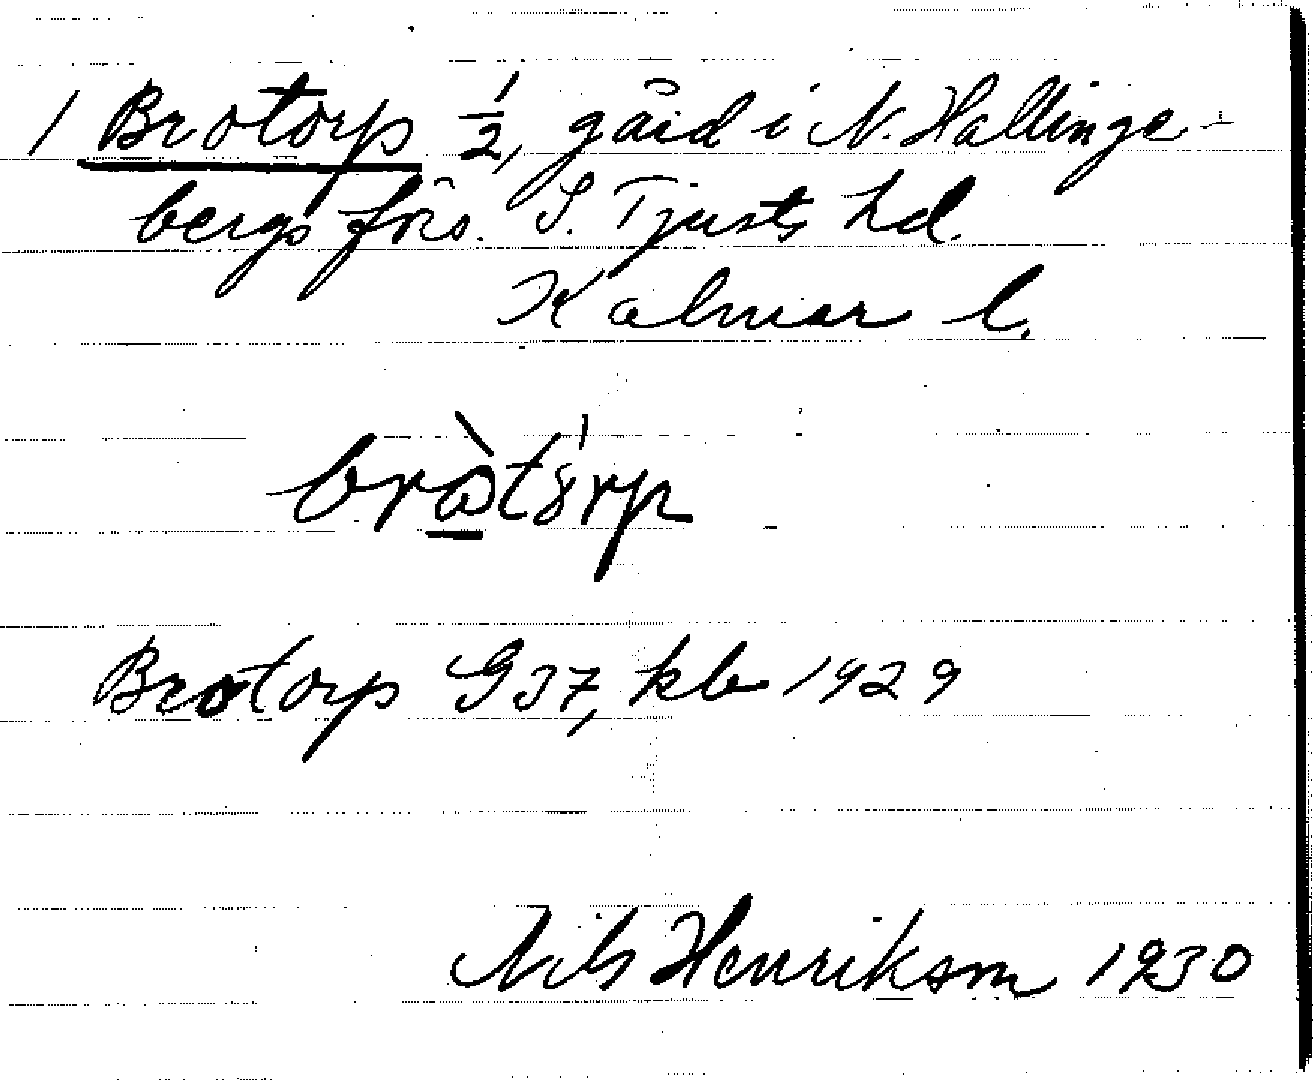 1 Brotorp 1/2, gård i N. Hallinge-
bergs förs. S. Tjusts hd.
Kalmar l.
Brotorp G37, kb 1929
Nils Henrikson 1930